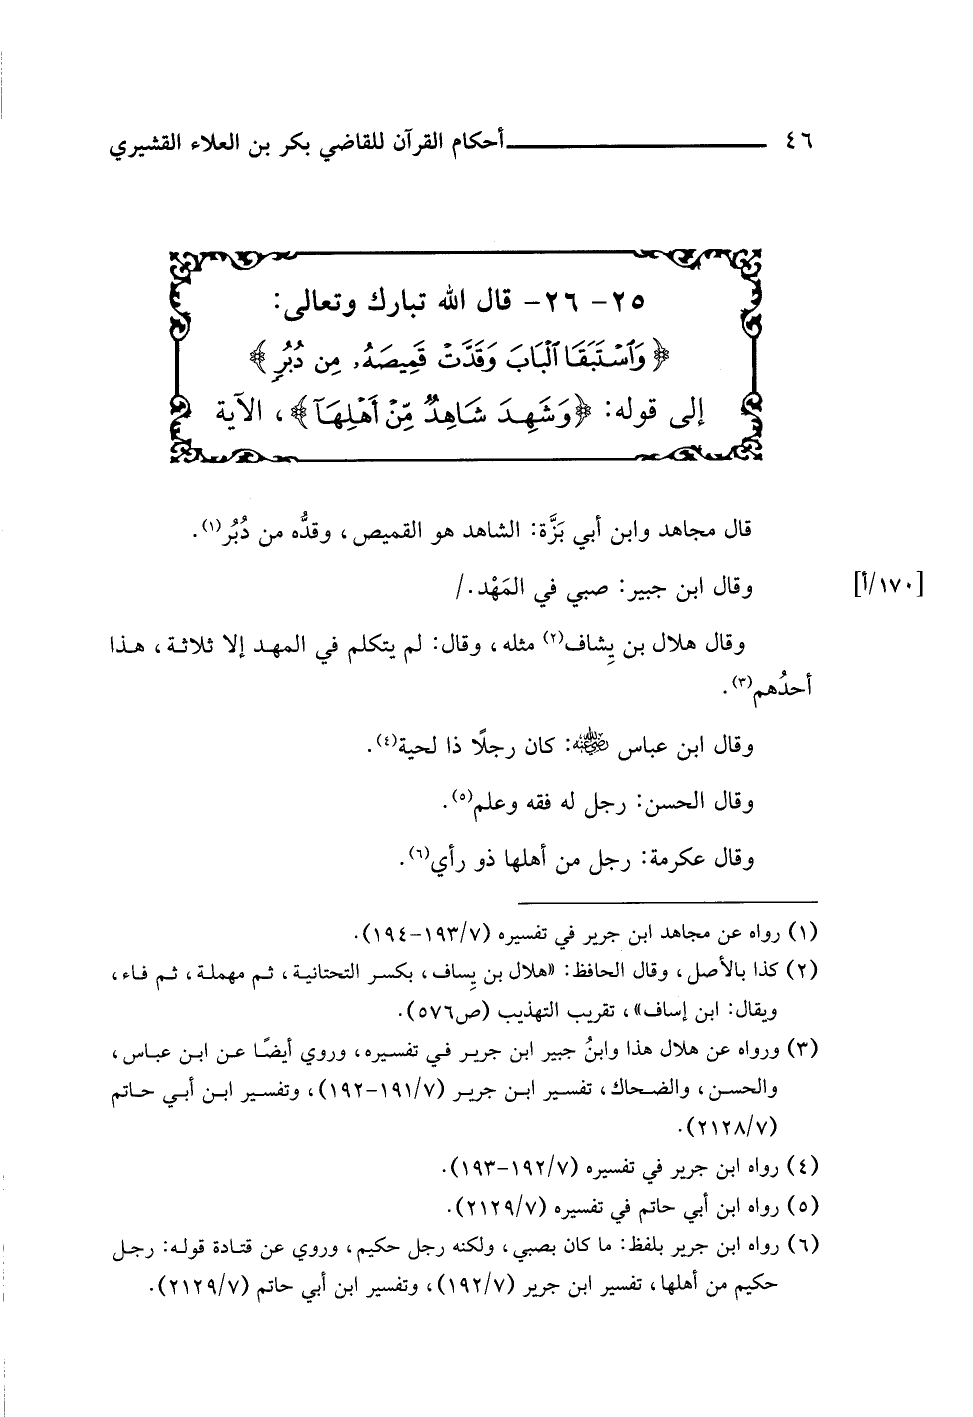 ٤٦ أحكام القرآن للقاضي بكر بن العلاء القشيري
٢٥- ٢٦- قال الله تبارك وتعالى:
﴿وَٱسْتَبَقَا ٱلْبَابَ وَقَدَّتْ قَمِيصَهُۥ مِن دُبُرٍ﴾
إلى قوله: ﴿وَشَهِدَ شَاهِدٌ مِّنْ أَهْلِهَآ﴾، الآية
قال مجاهد وابن أبي بَزَّة: الشاهد هو القميص، وقدُّه من دُبُر(١).
وقال ابن جبير: صبي في المَهْد./ [١٧٠/أ]
وقال هلال بن يِشاف(٢) مثله، وقال: لم يتكلم في المهد إلا ثلاثة، هذا
أحدُهم(٣).
وقال ابن عباس رضي الله عنه: كان رجلًا ذا لحية(٤).
وقال الحسن: رجل له فقه وعلم(٥).
وقال عكرمة: رجل من أهلها ذو رأي(٦).
(١) رواه عن مجاهد ابن جرير في تفسيره (١٩٣/٧-١٩٤).
(٢) كذا بالأصل، وقال الحافظ: «هلال بن يِساف، بكسر التحتانية، ثم مهملة، ثم فاء،
ويقال: ابن إساف»، تقريب التهذيب (ص٥٧٦).
(٣) ورواه عن هلال هذا وابنُ جبير ابن جرير في تفسيره، وروي أيضًا عن ابن عباس،
والحسن، والضحاك، تفسير ابن جرير (١٩١/٧-١٩٢)، وتفسير ابن أبي حاتم
(٢١٢٨/٧).
(٤) رواه ابن جرير في تفسيره (١٩٢/٧-١٩٣).
(٥) رواه ابن أبي حاتم في تفسيره (٢١٢٩/٧).
(٦) رواه ابن جرير بلفظ: ما كان بصبي، ولكنه رجل حكيم، وروي عن قتادة قوله: رجل
حكيم من أهلها، تفسير ابن جرير (١٩٢/٧)، وتفسير ابن أبي حاتم (٢١٢٩/٧).